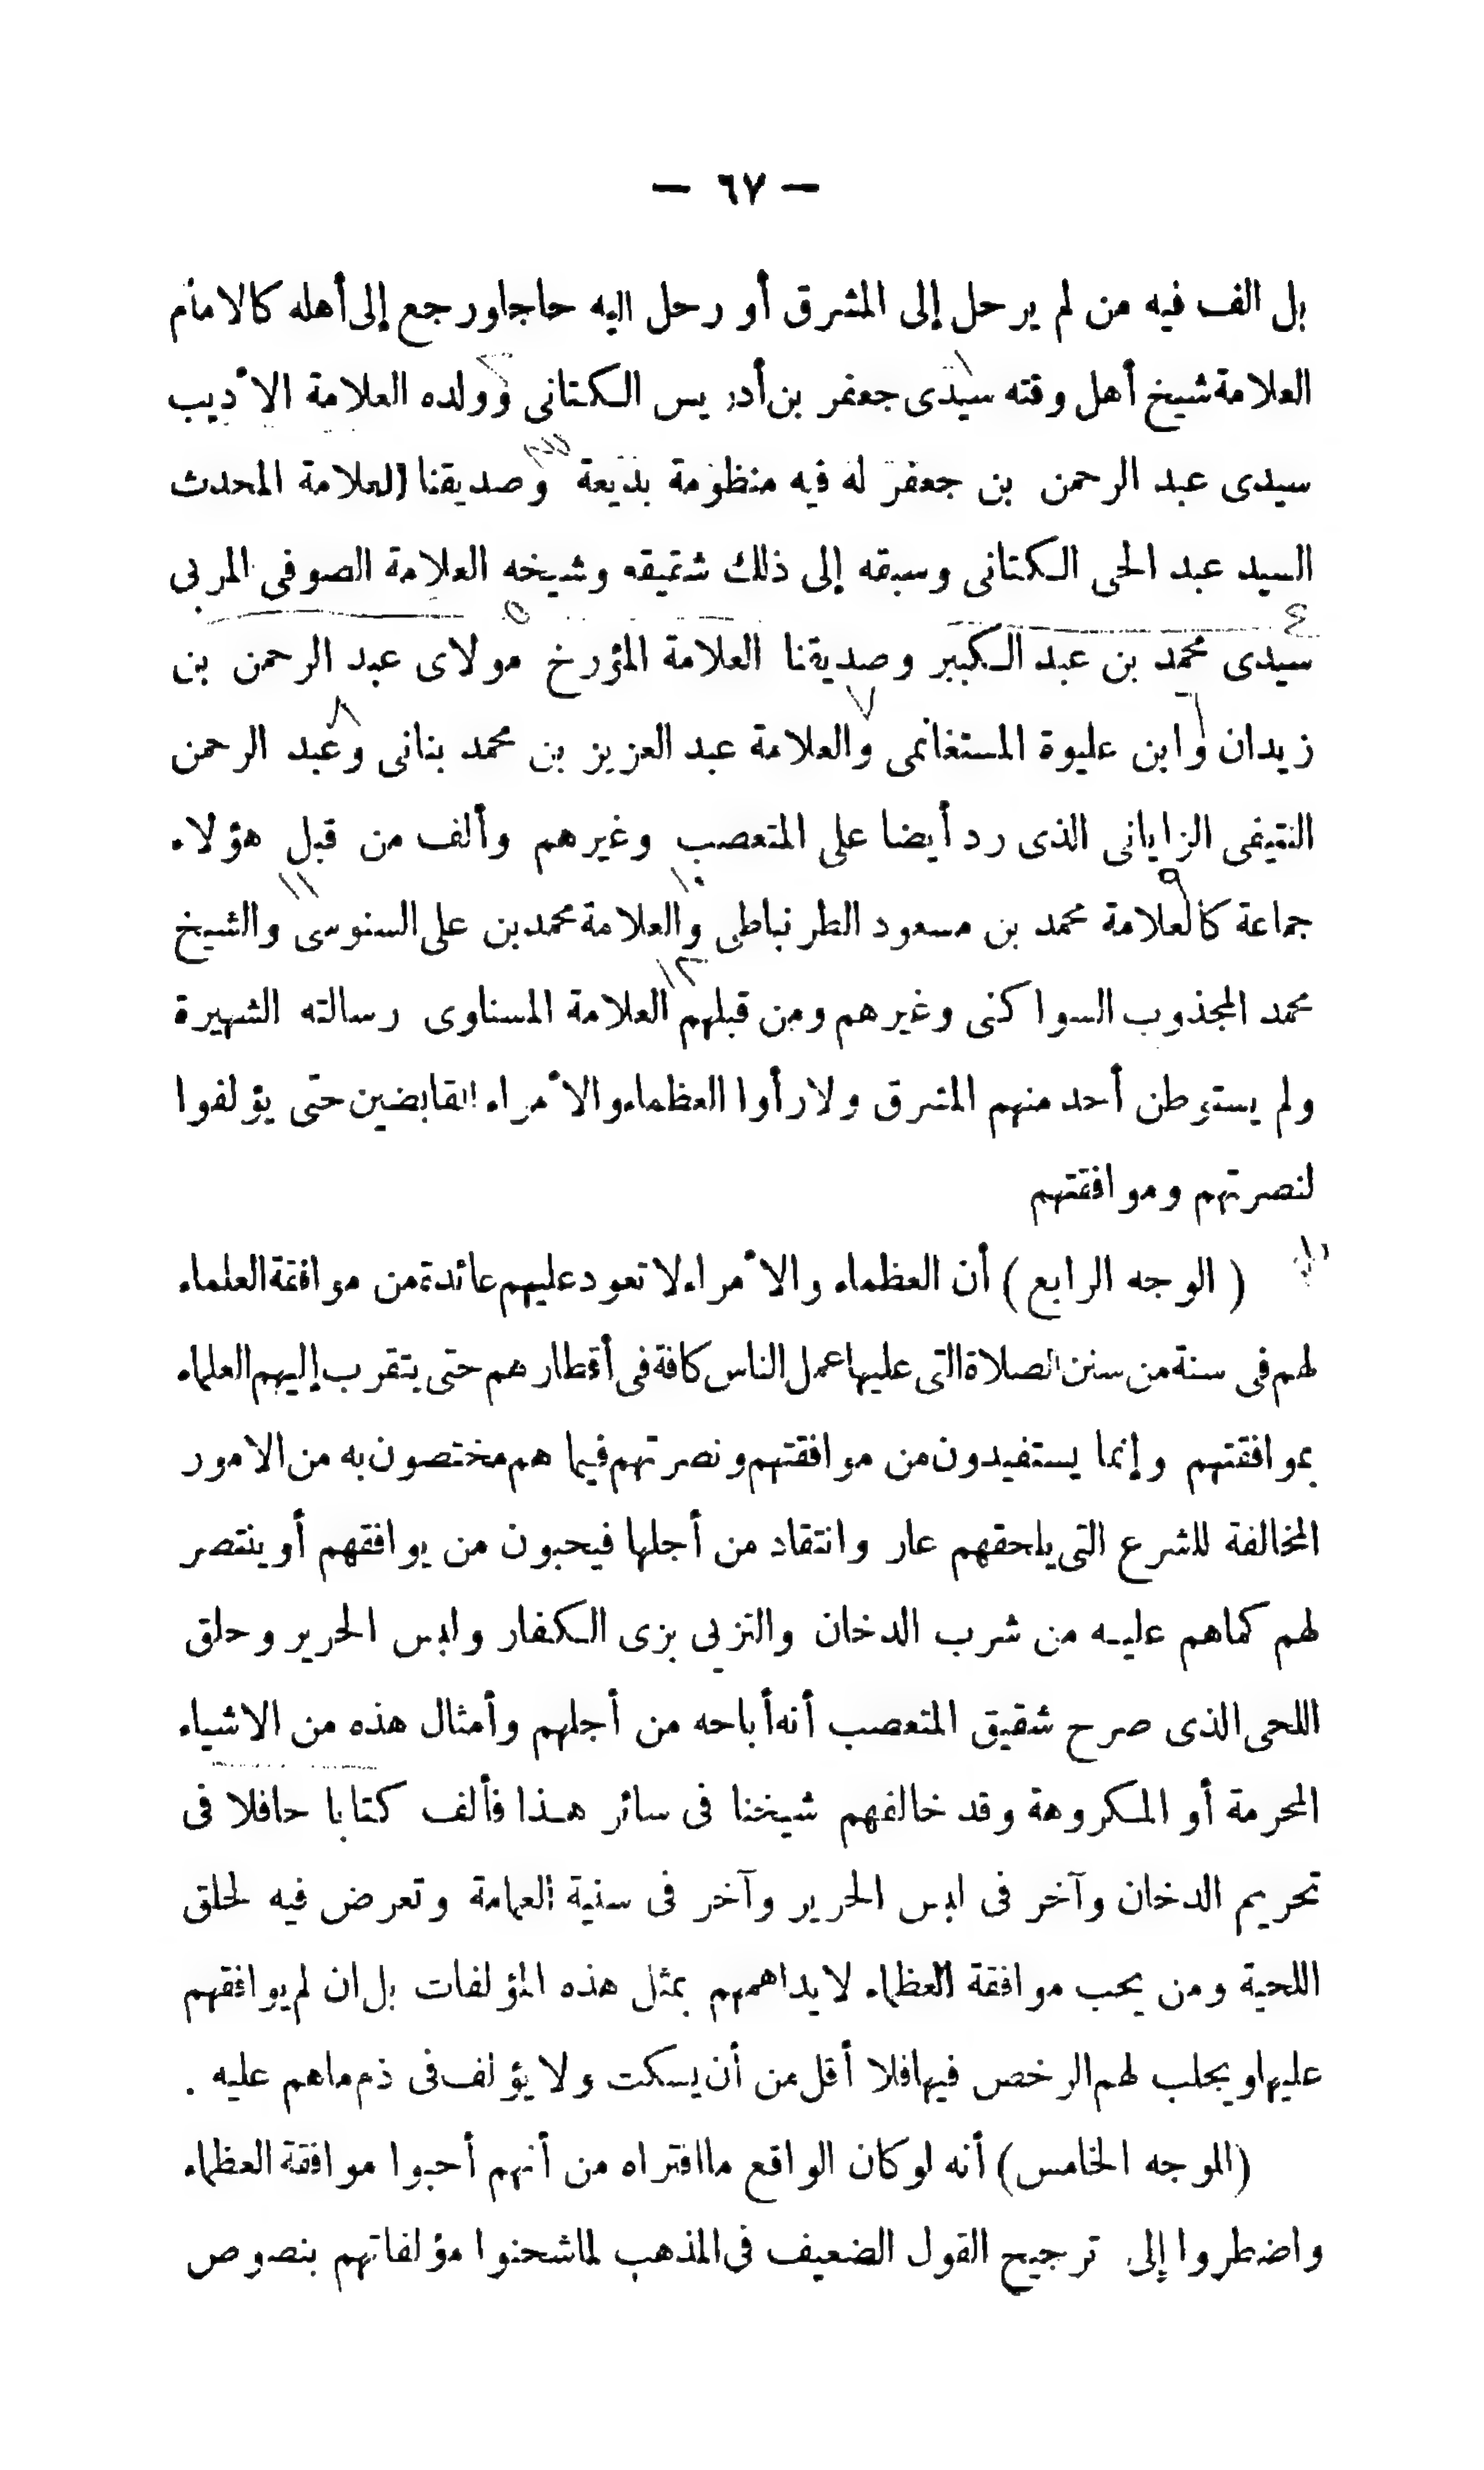 — ٦٧ —
بل الف فيه من لم يرحل إلى المشرق أو رحل اليه حاجا ورجع إلى أهله كالامام
العلامة شيخ أهل وقته سيدى جعفر بن أدريس الكتانى وولده العلامة الأديب
سيدى عبد الرحمن بن جعفر له فيه منظومة بديعة وصديقنا العلامة المحدث
السيد عبد الحى الكتانى وسبقه إلى ذلك شقيقه وشيخه العلامة الصوفى المربى
سيدى محمد بن عبد الكبير وصديقنا العلامة المؤرخ مولاى عبد الرحمن بن
زيدان وابن عليوة المستغانمى والعلامة عبد العزيز بن محمد بنانى وعبد الرحمن
النتيفى الزايانى الذى رد أيضا على المتعصب وغيرهم وألف من قبل هؤلاء
جماعة كالعلامة محمد بن مسعود الطرنباطى والعلامة محمد بن على السنوسى والشيخ
محمد المجذوب السواكنى وغيرهم ومن قبلهم العلامة المسناوى رسالته الشهيرة
ولم يستوطن أحد منهم المشرق ولا رأوا العظماء والأمراء القابضين حتى يؤلفوا
لنصرتهم وموافقتهم
( الوجه الرابع ) أن العظماء والأمراء لا تعود عليهم عائدة من موافقة العلماء
لهم فى سنة من سنن الصلاة التى عليها عمل الناس كافة فى أقطارهم حتى يتقرب إليهم العلماء
بموافقتهم وإنما يستفيدون من موافقتهم ونصرتهم فيما هم مختصون به من الامور
المخالفة للشرع التى يلحقهم عار وانتقاد من أجلها فيحبون من يوافقهم أو ينتصر
لهم كماهم عليه من شرب الدخان والتزيى بزى الكفار ولبس الحرير وحلق
اللحى الذى صرح شقيق المتعصب أنه أباحه من أجلهم وأمثال هذه من الاشياء
المحرمة أو المكروهة وقد خالفهم شيخنا فى سائر هذا فألف كتابا حافلا فى
تحريم الدخان وآخر فى لبس الحرير وآخر فى سنية العمامة وتعرض فيه لحلق
اللحية ومن يحب موافقة العظماء لا يداهمهم بمثل هذه المؤلفات بل ان لم يوافقهم
عليها ويجلب لهم الرخص فيها فلا أقل من أن يسكت ولا يؤلف فى ذم ماهم عليه .
(الوجه الخامس) أنه لو كان الواقع ما افتراه من أنهم أحبوا موافقة العظماء
واضطروا إلى ترجيح القول الضعيف فى المذهب لما شحنوا مؤلفاتهم بنصوص